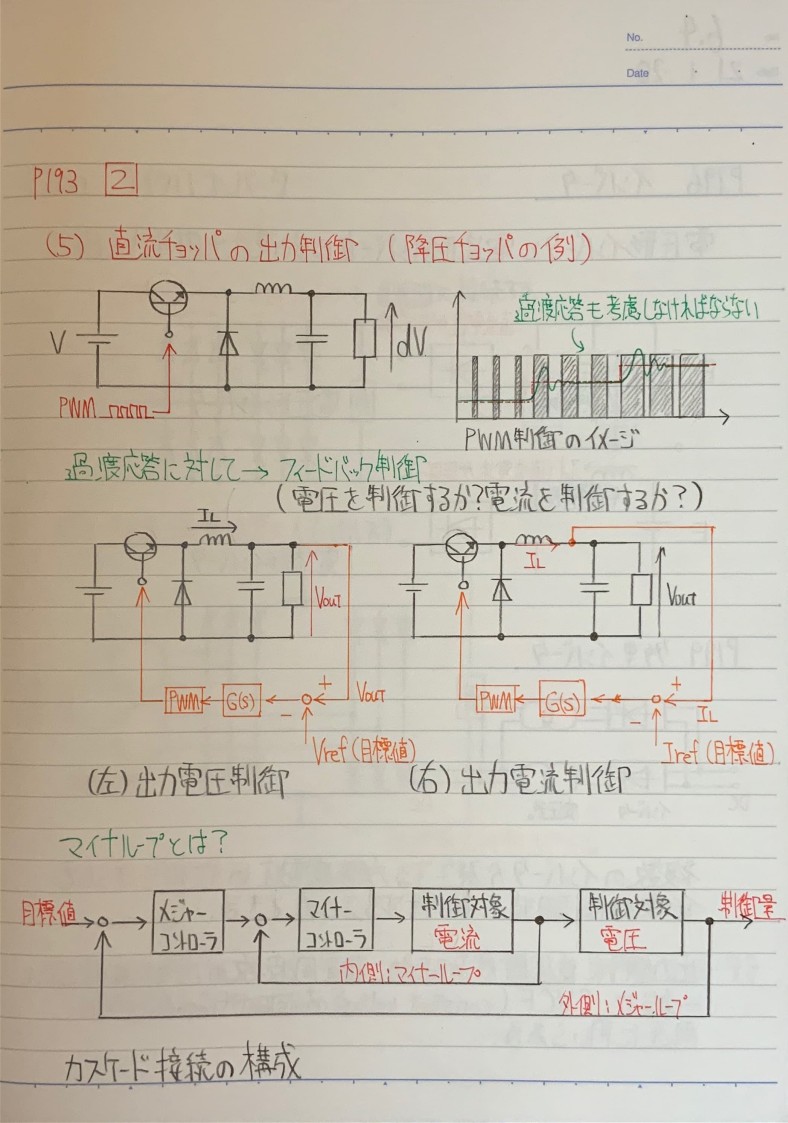 No.
Date
P193 2
(5) 直流チョッパの出力制御 (降圧チョッパの例)
V
dV
PWM
過渡応答も考慮しなければならない
PWM制御のイメージ
過渡応答に対して→ フィードバック制御
(電圧を制御するか?電流を制御するか?)
IL
Vout
PWM
G(s)
+
-
Vout
Vref(目標値)
(左)出力電圧制御
IL
Vout
PWM
G(s)
+
-
IL
Iref(目標値)
(右)出力電流制御
マイナループとは?
目標値
メジャー
コントローラ
マイナー
コントローラ
制御対象
電流
制御対象
電圧
制御量
内側:マイナーループ
外側:メジャーループ
カスケード接続の構成